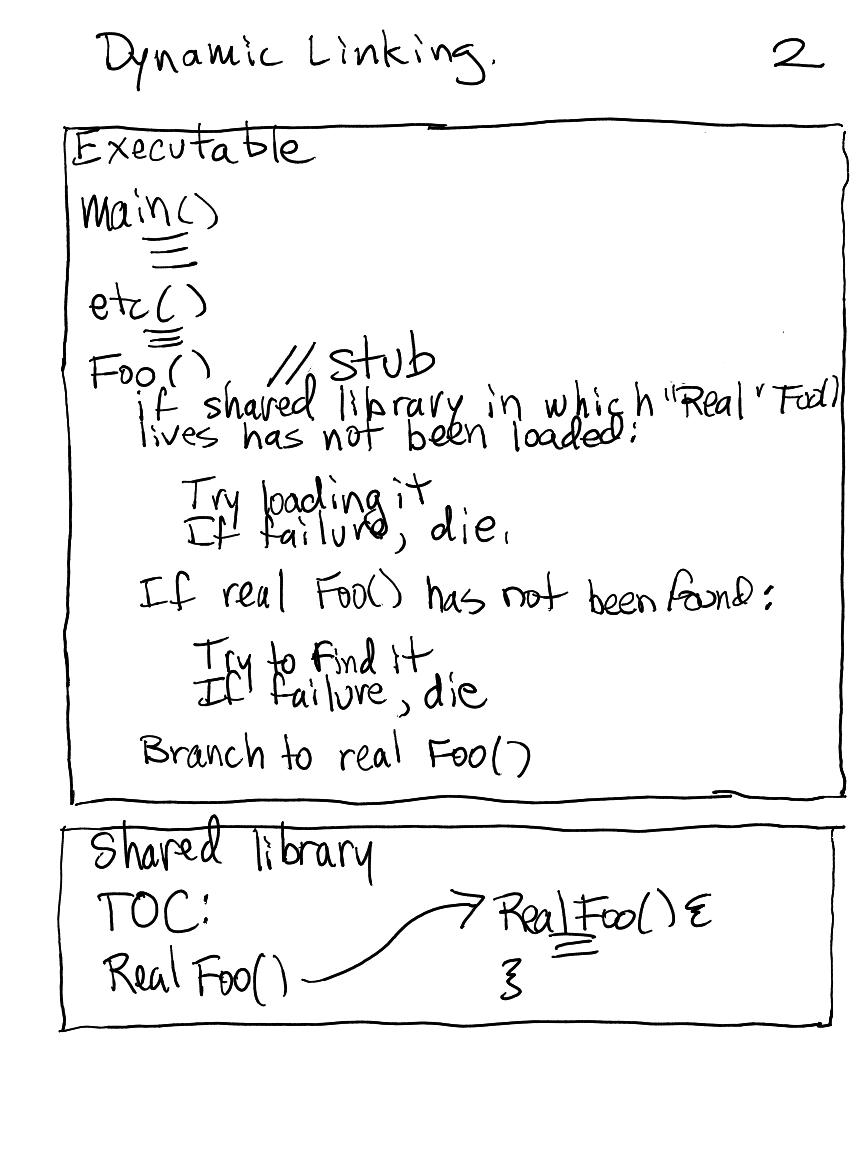 Dynamic Linking. 2
Executable
main()
etc()
Foo() // stub
if shared library in which "Real" Foo()
lives has not been loaded:
Try loading it
If failure, die.
If real Foo() has not been found:
Try to find it
If failure, die
Branch to real Foo()
Shared library
TOC: Real Foo() {
Real Foo() }